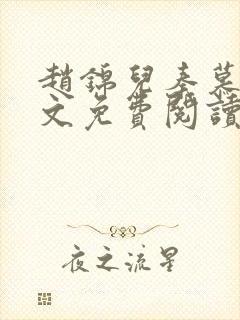 趙錦兒秦慕
文免費閱讀
夜之流星